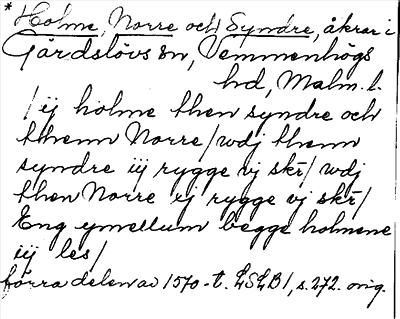 * Holme, Norre och Syndre, åkrar i
Gärdslövs sn, Vemmenhögs
hd, Malm. l.
/ij holme then syndre och
thenn Norre/ wdj thenn
syndre iij rygge vj skr̄/ wdj
then Norre ij rygge vj skr̄/
Eng ymellum begge holmene
iij les/
förra delen av 1570-t. LSLB1, s.272. orig.